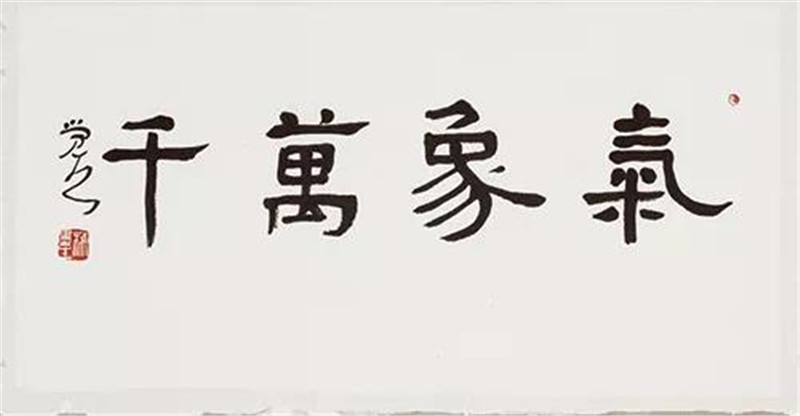 氣象萬千